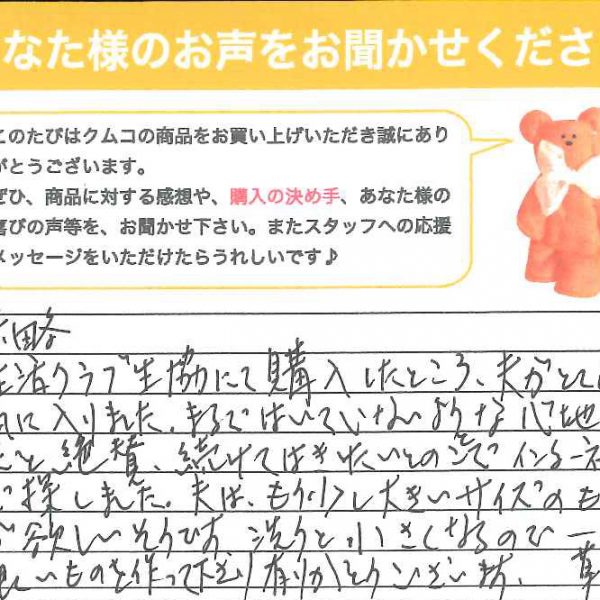 なた様のお声をお聞かせくださ
このたびはクムコの商品をお買い上げいただき誠にあり
がとうございます。
ぜひ、商品に対する感想や、購入の決め手、あなた様の
喜びの声等を、お聞かせ下さい。またスタッフへの応援
メッセージをいただけたらうれしいです♪
前略
生活クラブ生協にて購入したところ、夫がとても
気に入りました。まるではいていないような心地
だと絶賛、続けてはきたいとので インターネ
で探しました。夫は、もう少し大きいサイズのも
が欲しいそうです。洗うと小さくなるので 一
良いものを作って下さり有りがとうございます。 草